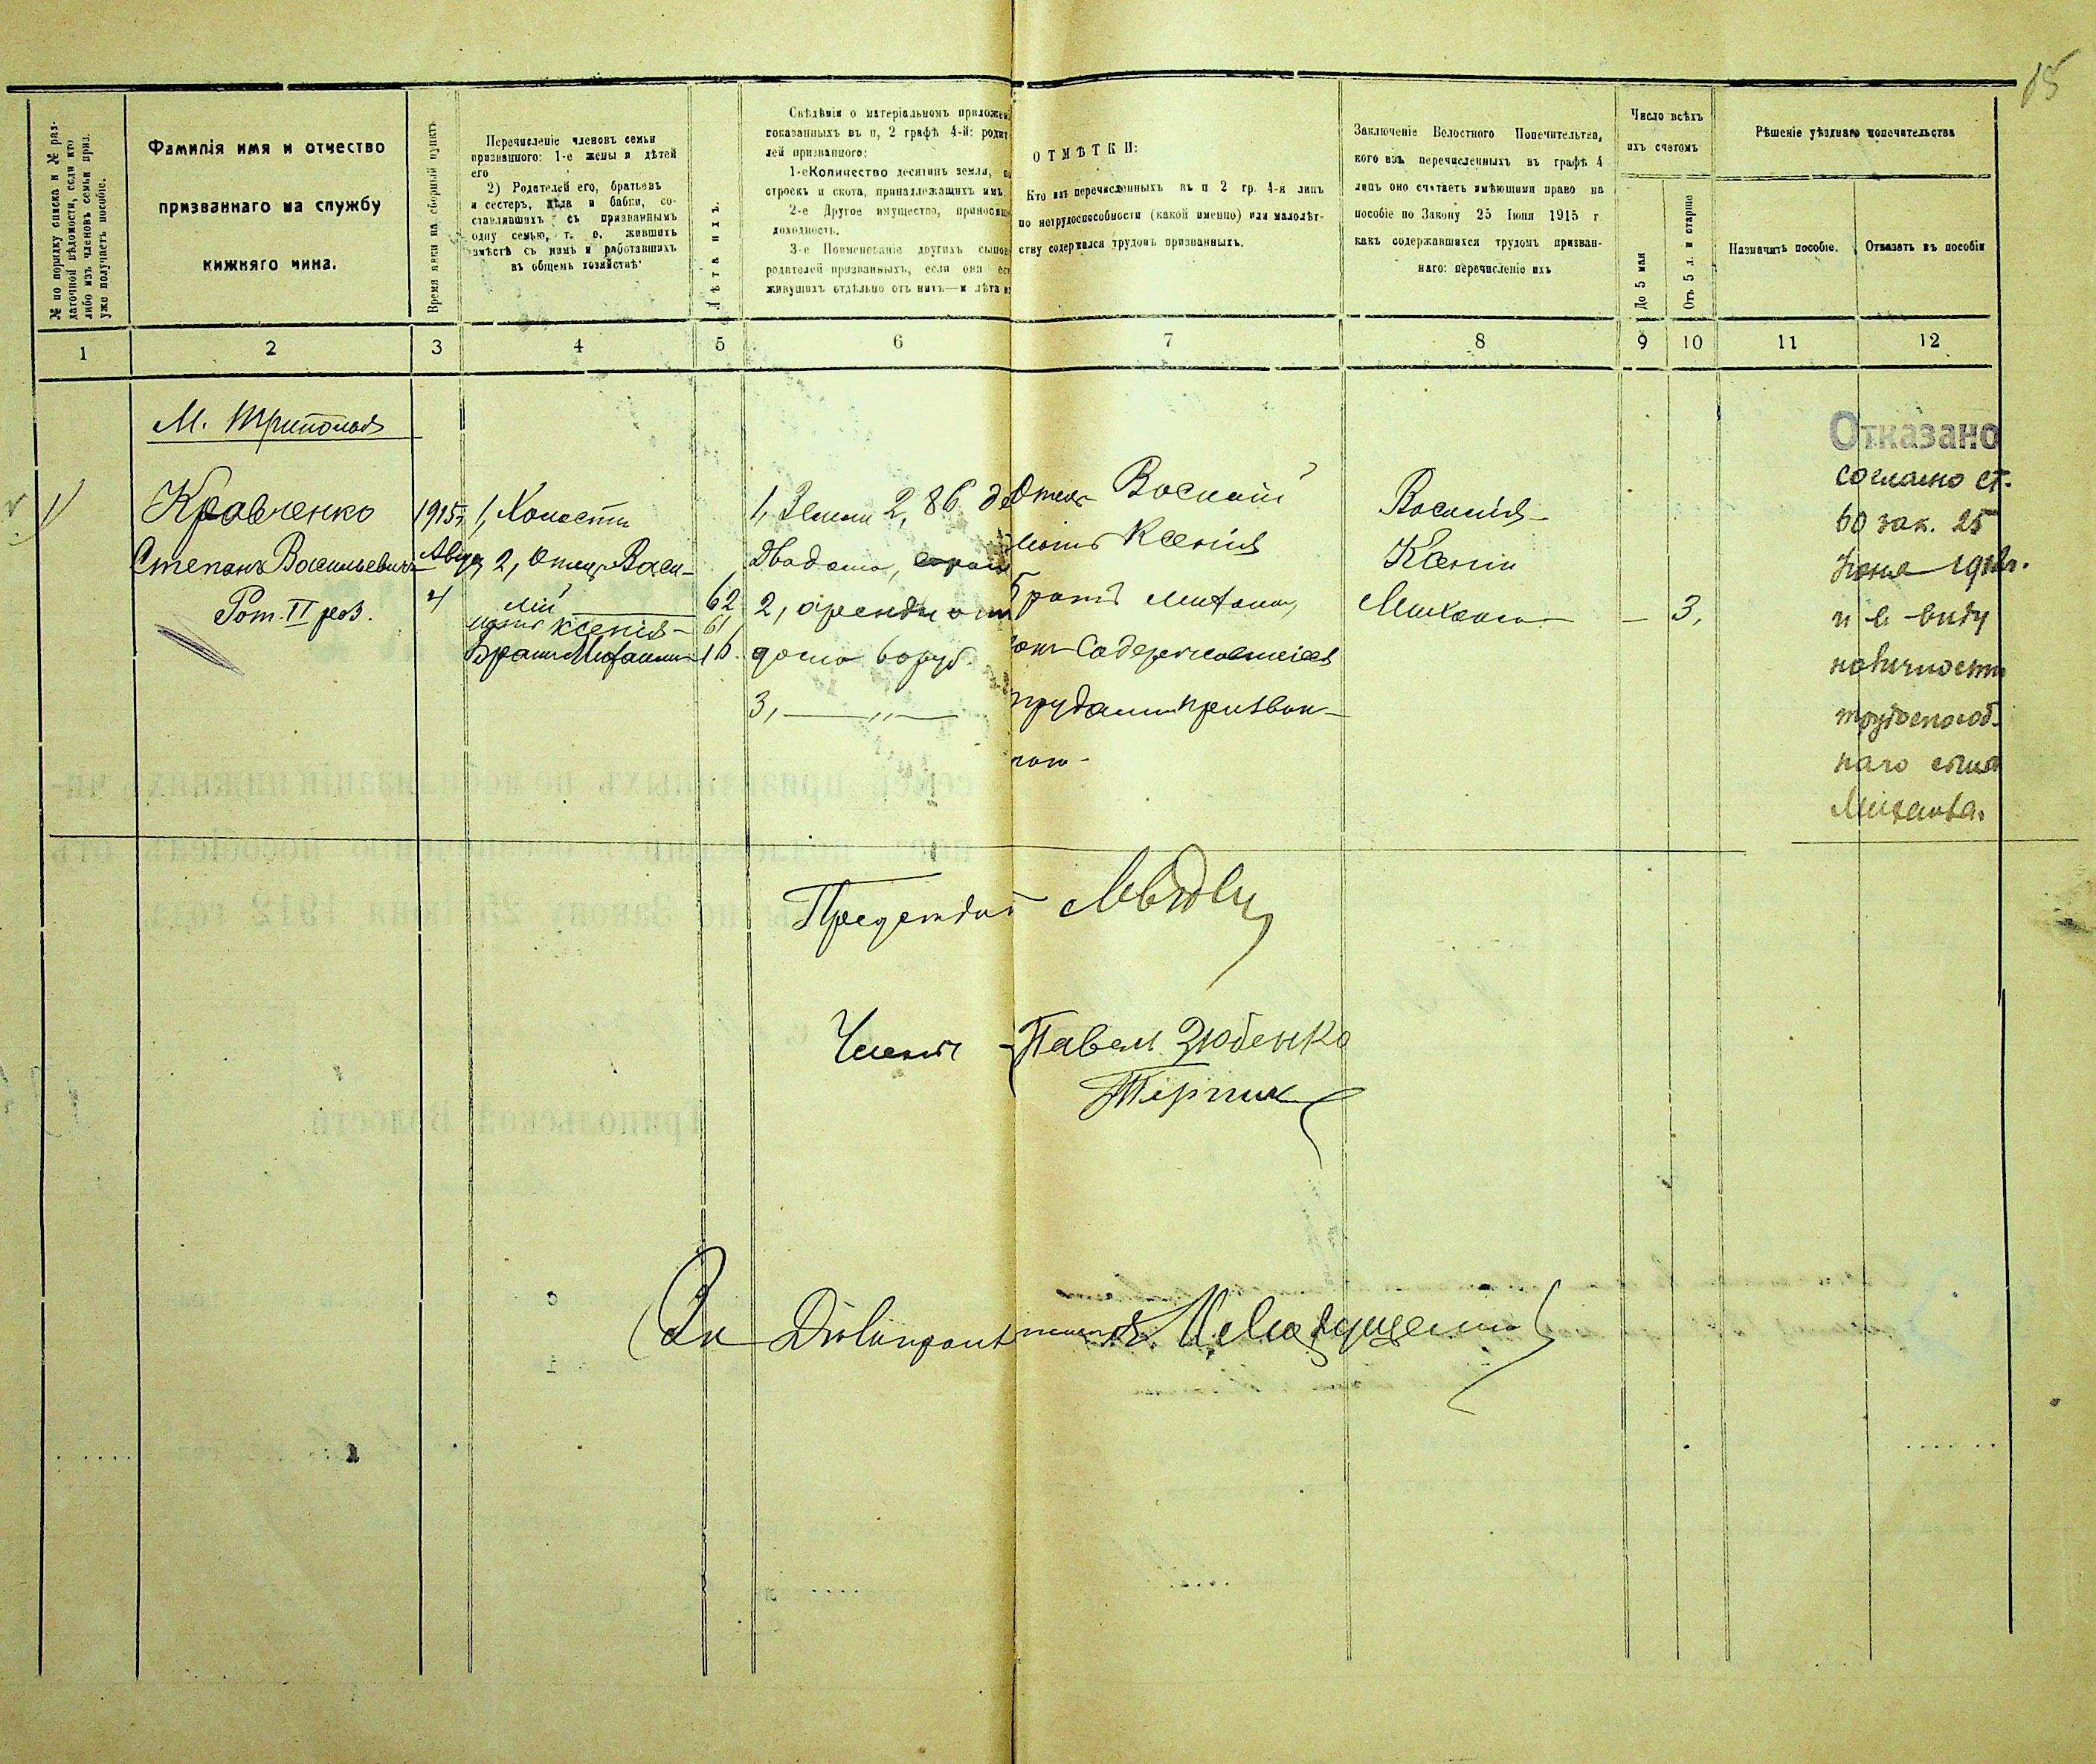 15
№ по порядку списка и № раз-
даточной вѣдомости, если кто
либо изъ членовъ семьи приз.
уже получаетъ пособіе.
Фамилія имя и отчество
призваннаго на службу
нижняго чина.
Время явки на сборный пунктъ
Перечисленіе членовъ семьи
призваннаго: 1-е жены и дѣтей
его
2) Родателей его, братьевъ
и сестеръ, дѣда и бабки, со-
ставлявшихъ съ призваннымъ
одну семью, т. е. жившихъ
вмѣстѣ съ нимъ и работавшихъ
въ общемъ хозяйствѣ
Лѣта ихъ.
Свѣдѣнія о матеріальномъ приложен
показанныхъ въ п, 2 графѣ 4-й: родит
лей призваннаго:
1-е Количество десятинъ земли, п
строекъ и скота, принадлежащихъ имъ.
2-е Другое имущество, приносящ
доходность.
3-е Поименованіе другихъ сынов
родителей призванныхъ, если они ес
живущихъ отдѣльно отъ нихъ—и лѣта и
ОТМѢТКИ:
Кто изъ перечисленныхъ въ п 2 гр. 4-я лицъ
по нетрудоспособности (какой именно) или малолѣт-
ству содержался трудомъ призванныхъ.
Заключеніе Волостного Попечительтва,
кого изъ перечисленныхъ въ графѣ 4
лицъ оно считаетъ имѣющими право на
пособіе по Закону 25 Іюня 1915 г
какъ содержавшихся трудомъ призван-
наго: перечисленіе ихъ
Число всѣхъ
ихъ счетомъ
До 5 мая
Отъ 5 л. и старше
Рѣшеніе уѣзднаго попечательства
Назначить пособіе.
Отказать въ пособіи
1 2 3 4 5 6 7 8 9 10 11 12
М. Триполье
Кравченко
Степанъ Васильевич
Рот. II раз.
1915 г
Авгус
4
1, Холостъ
2, Отец Васи-
лій 62
мать Ксенія - 61
Братъ Михаилъ 16.
1, Земли 2,86 де
2, аренды о
дома 60 руб.
3, — „ —
Отецъ Василій
мать Ксенія
Братъ Михаил,
Содержались
трудами призван-
наго -
Василія
Ксенія
Михаил — 3,
Отказано
согласно ст.
60 зак. 25
Іюня 1912 г.
и в виду
наличности
трудоспособ-
наго сына
Михаила.
Члены Павел Зюбенко